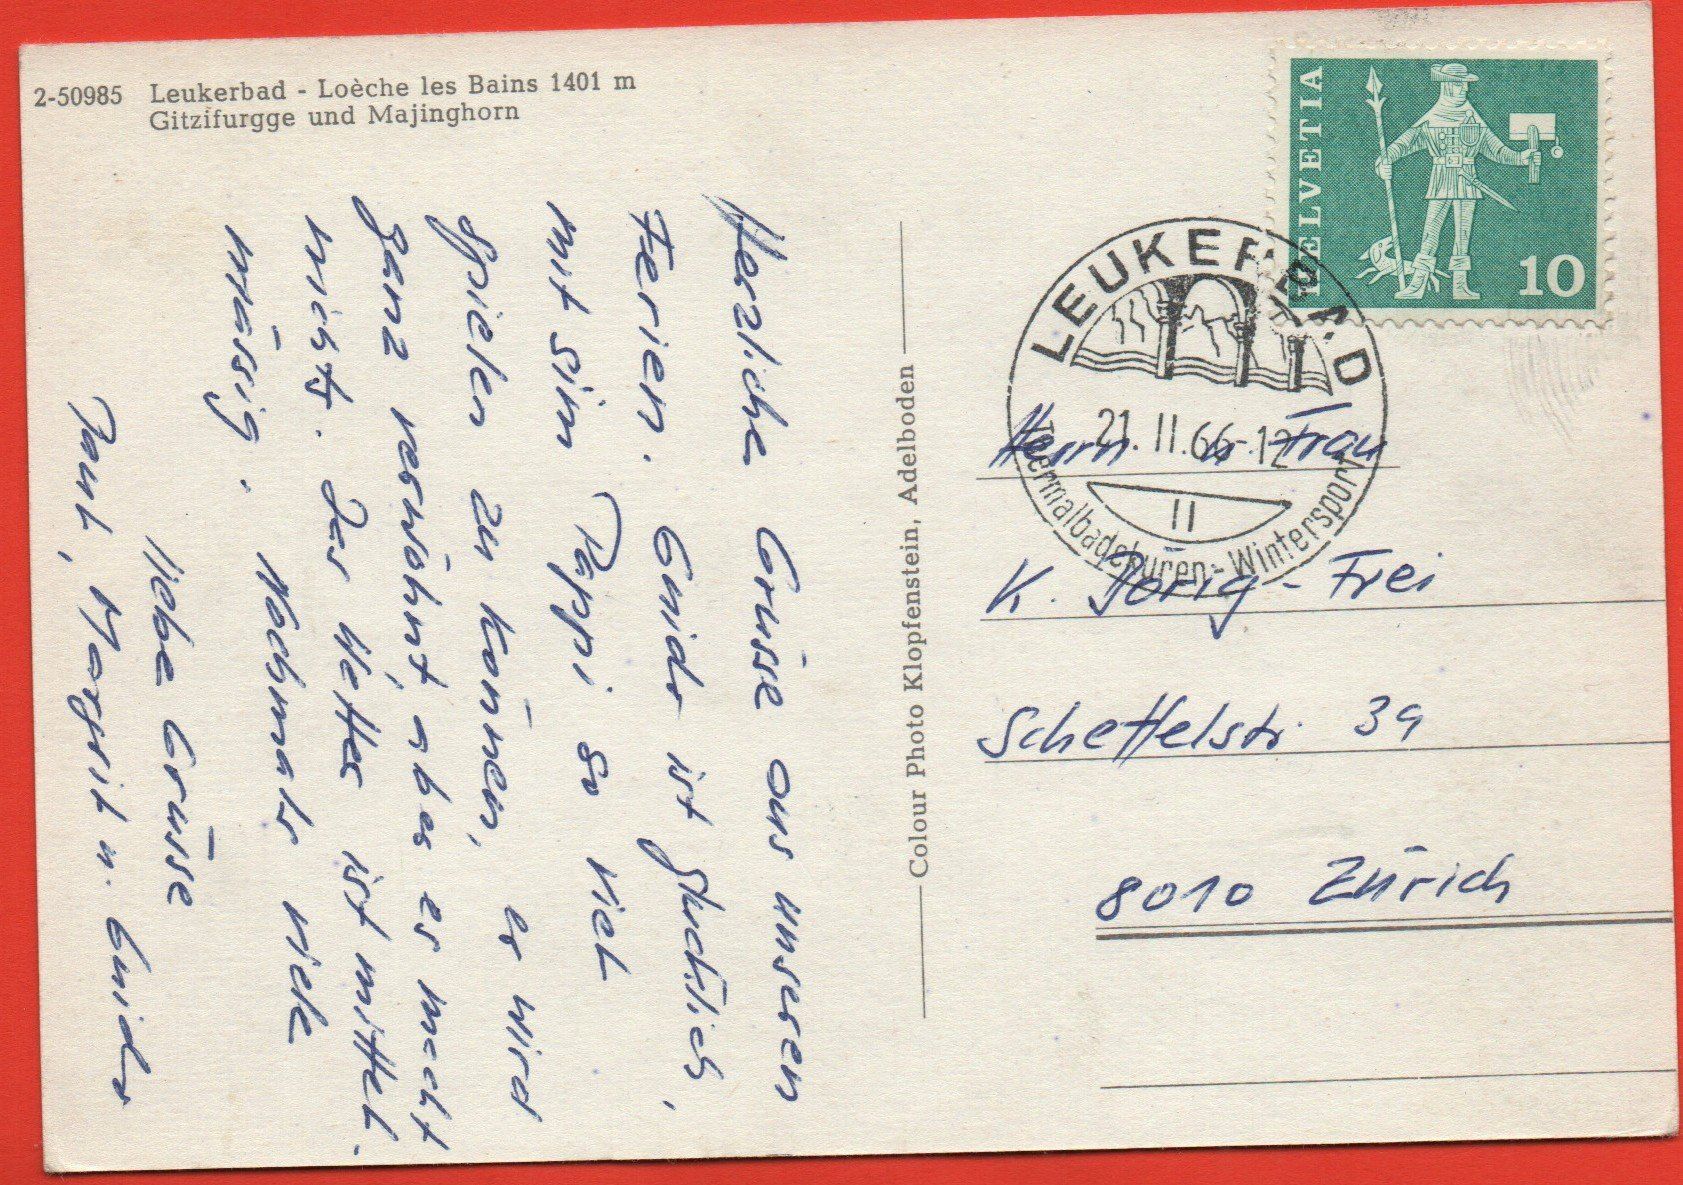 2-50985 Leukerbad - Loèche les Bains 1401 m
Gitzifurgge und Majinghorn
Herzliche Grüsse aus unseren
Ferien. Guido ist glücklich,
mit sim Päppi so viel
spielen zu können, er wird
ganz verwöhnt, aber es macht
nichts. Das Wetter ist mittel-
mässig. Nochmals viele
liebe Grüsse
Paul, Margrit u. Guido
Colour Photo Klopfenstein, Adelboden
HELVETIA
10
LEUKERBAD
21.II.66-12
II
Thermalbadekuren-Wintersport
Herrn u. Frau
K. Jörig-Frei
Scheffelstr. 39
8010 Zürich